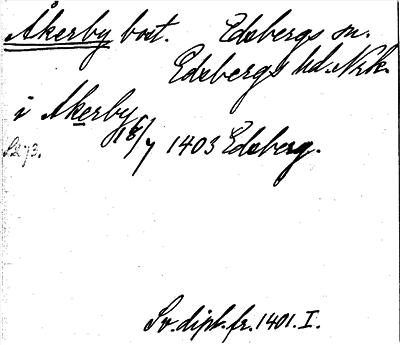 Åkerby bost. Edsbergs sn.
Edsbergs hd. Nrk.
i Akerby
18/7 1403 Edsberg.
S. 273.
Sv. dipl. fr. 1401. I.